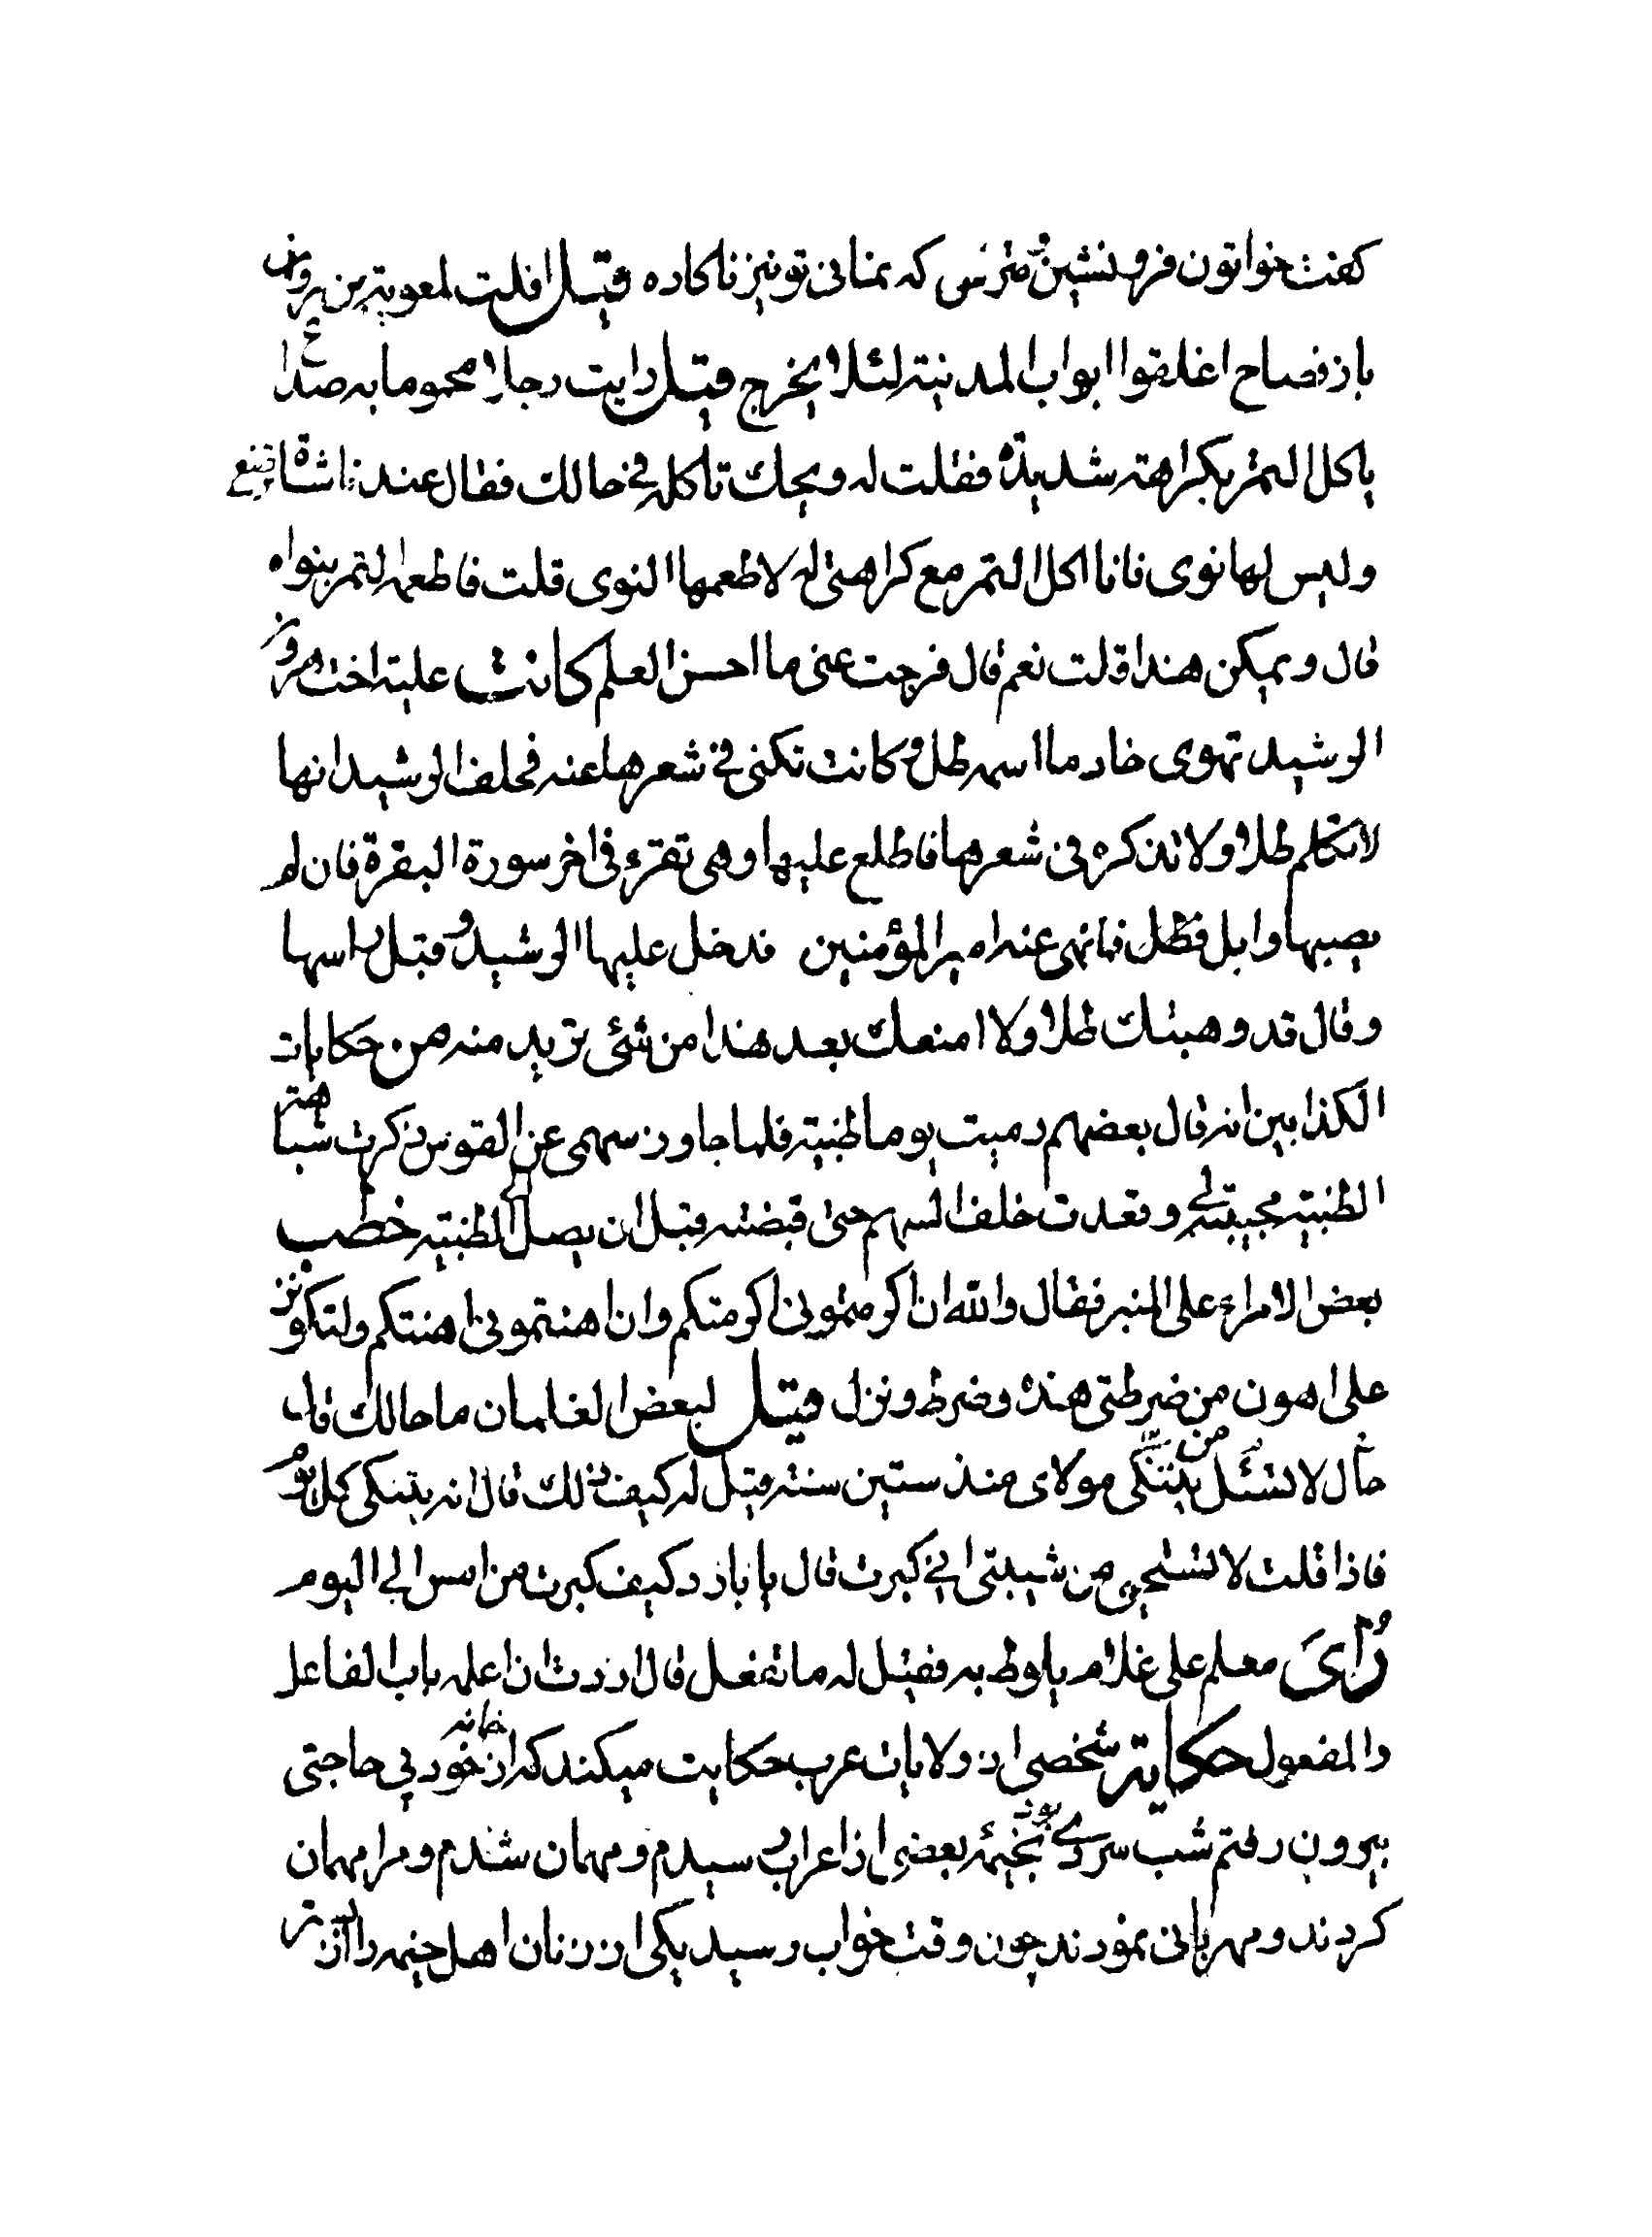 کفت خواتون فرو نشین و مترس که بمنانی تو نیز ناکاده قیل افلت لمعویة بن مروان
باز فصاح اغلقوا ابواب المدینة لئلا یخرج قیل رایت رجلا محموما به صداع
یاکل التمر بکراهة شدیدة فقلت له ویحك تاکله فی حالك فقال عندنا شاة ترضع
ولیس لها نوی فانا اکل التمر مع کراهتی له لاطعمها النوی قلت فاطعمها التمر بنواه
قال ویمکن هذا قلت نعم قال فرجت عنی ما احسن العلم کانت علیة اخت هرون
الرشید تهوی خادما اسمه طل وکانت تکنی فی شعرها عنه فحلف الرشید انها
لا تکلم طلا ولا تذکره فی شعرها فاطلع علیها وهی تقرء فی اخر سورة البقرة فان لم
یصبها وابل فطل فما نهی عنه امیر المؤمنین فدخل علیها الرشید وقبل راسها
وقال قد وهبتك طلا ولا امنعك بعد هذا من شئی تریدمنه من حکایات
الکذابین انه قال بعضهم رمیت یوما ظبیة فلما جاوز سهمی عن القوس ذکرت شباهة
الظبیة بحبیبة لی وتعدت خلف السهم حتی قبضته قبل ان یصل الی الظبیة خطب
بعض الامراء علی المنبر فقال والله ان اکرمتمونی اکرمتکم وان اهنتمونی اهنتکم ولتکونن
علی اهون من ضرطتی هذه وضرط ونزل قیل لبعض الغلمان ما حالك قال
حال لا تسئل من ینیکی مولای منذ ستین سنة قیل له کیف ذلك قال انه ینیکی کل یوم
فاذا قلت لا تستحیی من شیبتی انی کبرت قال یا بارد کیف کبرت من امس الی الیوم
رُأیَ معلم علی غلام یلوط به فقیل له ما تفعل قال اردت ان اعلمه باب الفاعل
والمفعول حکایة شخصی از ولایات عرب حکایت میکند که از خانه خود پی حاجتی
بیرون رفتم شب سردی بود بخیمۀ بعضی از اعراب رسیدم و مهمان شدم و مرا مهمان
کردند و مهربانی نمودند چون وقت خواب رسید یکی از زنان اهل خیمه را از